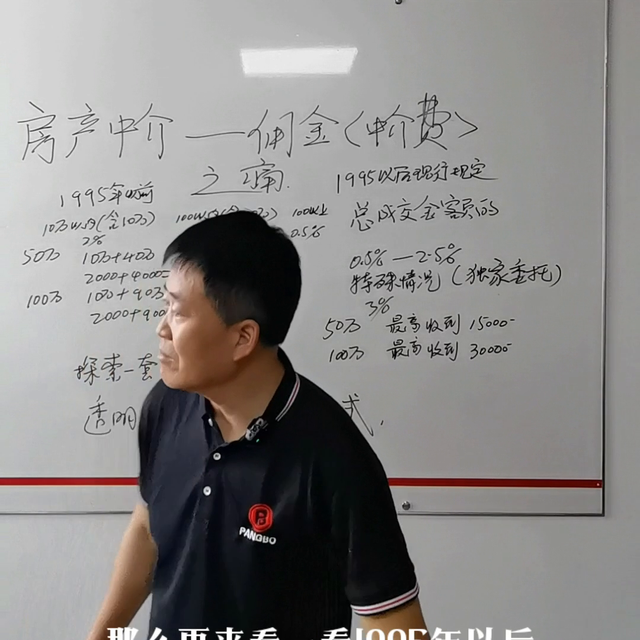 房产中介——佣金(中介费)
之痛.
1995年以前
10万以内(含10万)
100以上
2%
0.5%
50万 10万+40万
2000+4000=
100万 10万+90万
2000+900
1995以后现行规定
总成交金额的
0.5%—2.5%
特殊情况(独家委托)
3%
50万 最高收到 15000-
100万 最高收到 30000-
探索一套
透明
式.
PANGBO
那么再来看一看1995年以后